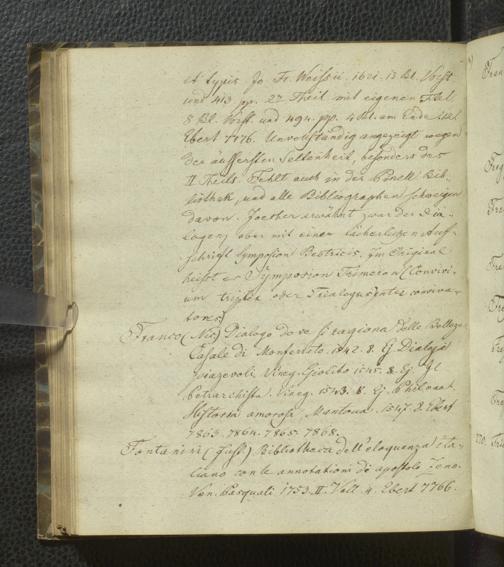 et typis Jo. Fr. Weissii. 1621. 13 Bl. Vorst
und 413 pp. 2r Theil mit eigenen Titel
8 Bl. Vorst. und 494. pp. 4 Bl. am Ende
Ebert 7776. Unvollständig angezeigt wegen
der äussersten Seltenheit, besonders des
II Theils. Fehlt auch in der Bib-
liothek, und alle Bibliographen schweigen
davon. Goethe erwähnt zwar der Dia-
logen, aber mit einer lächerlichen Auf-
schrift Symposion Beatricis, im Original
heisst es Symposion Trimeron (Convivi-
um triplex oder
tores)
Franco (Nic) Dialogo dove si ragiona delle Bellezze
Casale di Monferrato. 1542. 8. Ej. Dialogi
piacevoli. Vineg. Giolito 1545. 8. Ej. Il
Petrarchista. Vineg. 1543. 8. Ej. Philena
Historia amorosa. Mantoua. 1547. 8. Ebert
7863. 7864. 7865. 7868.
Fontanini (Giust) Bibliotheca dell'eloquenza Ita-
liana con le annotationi di apostolo Zeno.
Ven. Pasquali 1753. II. Voll. 4. Ebert 7766.